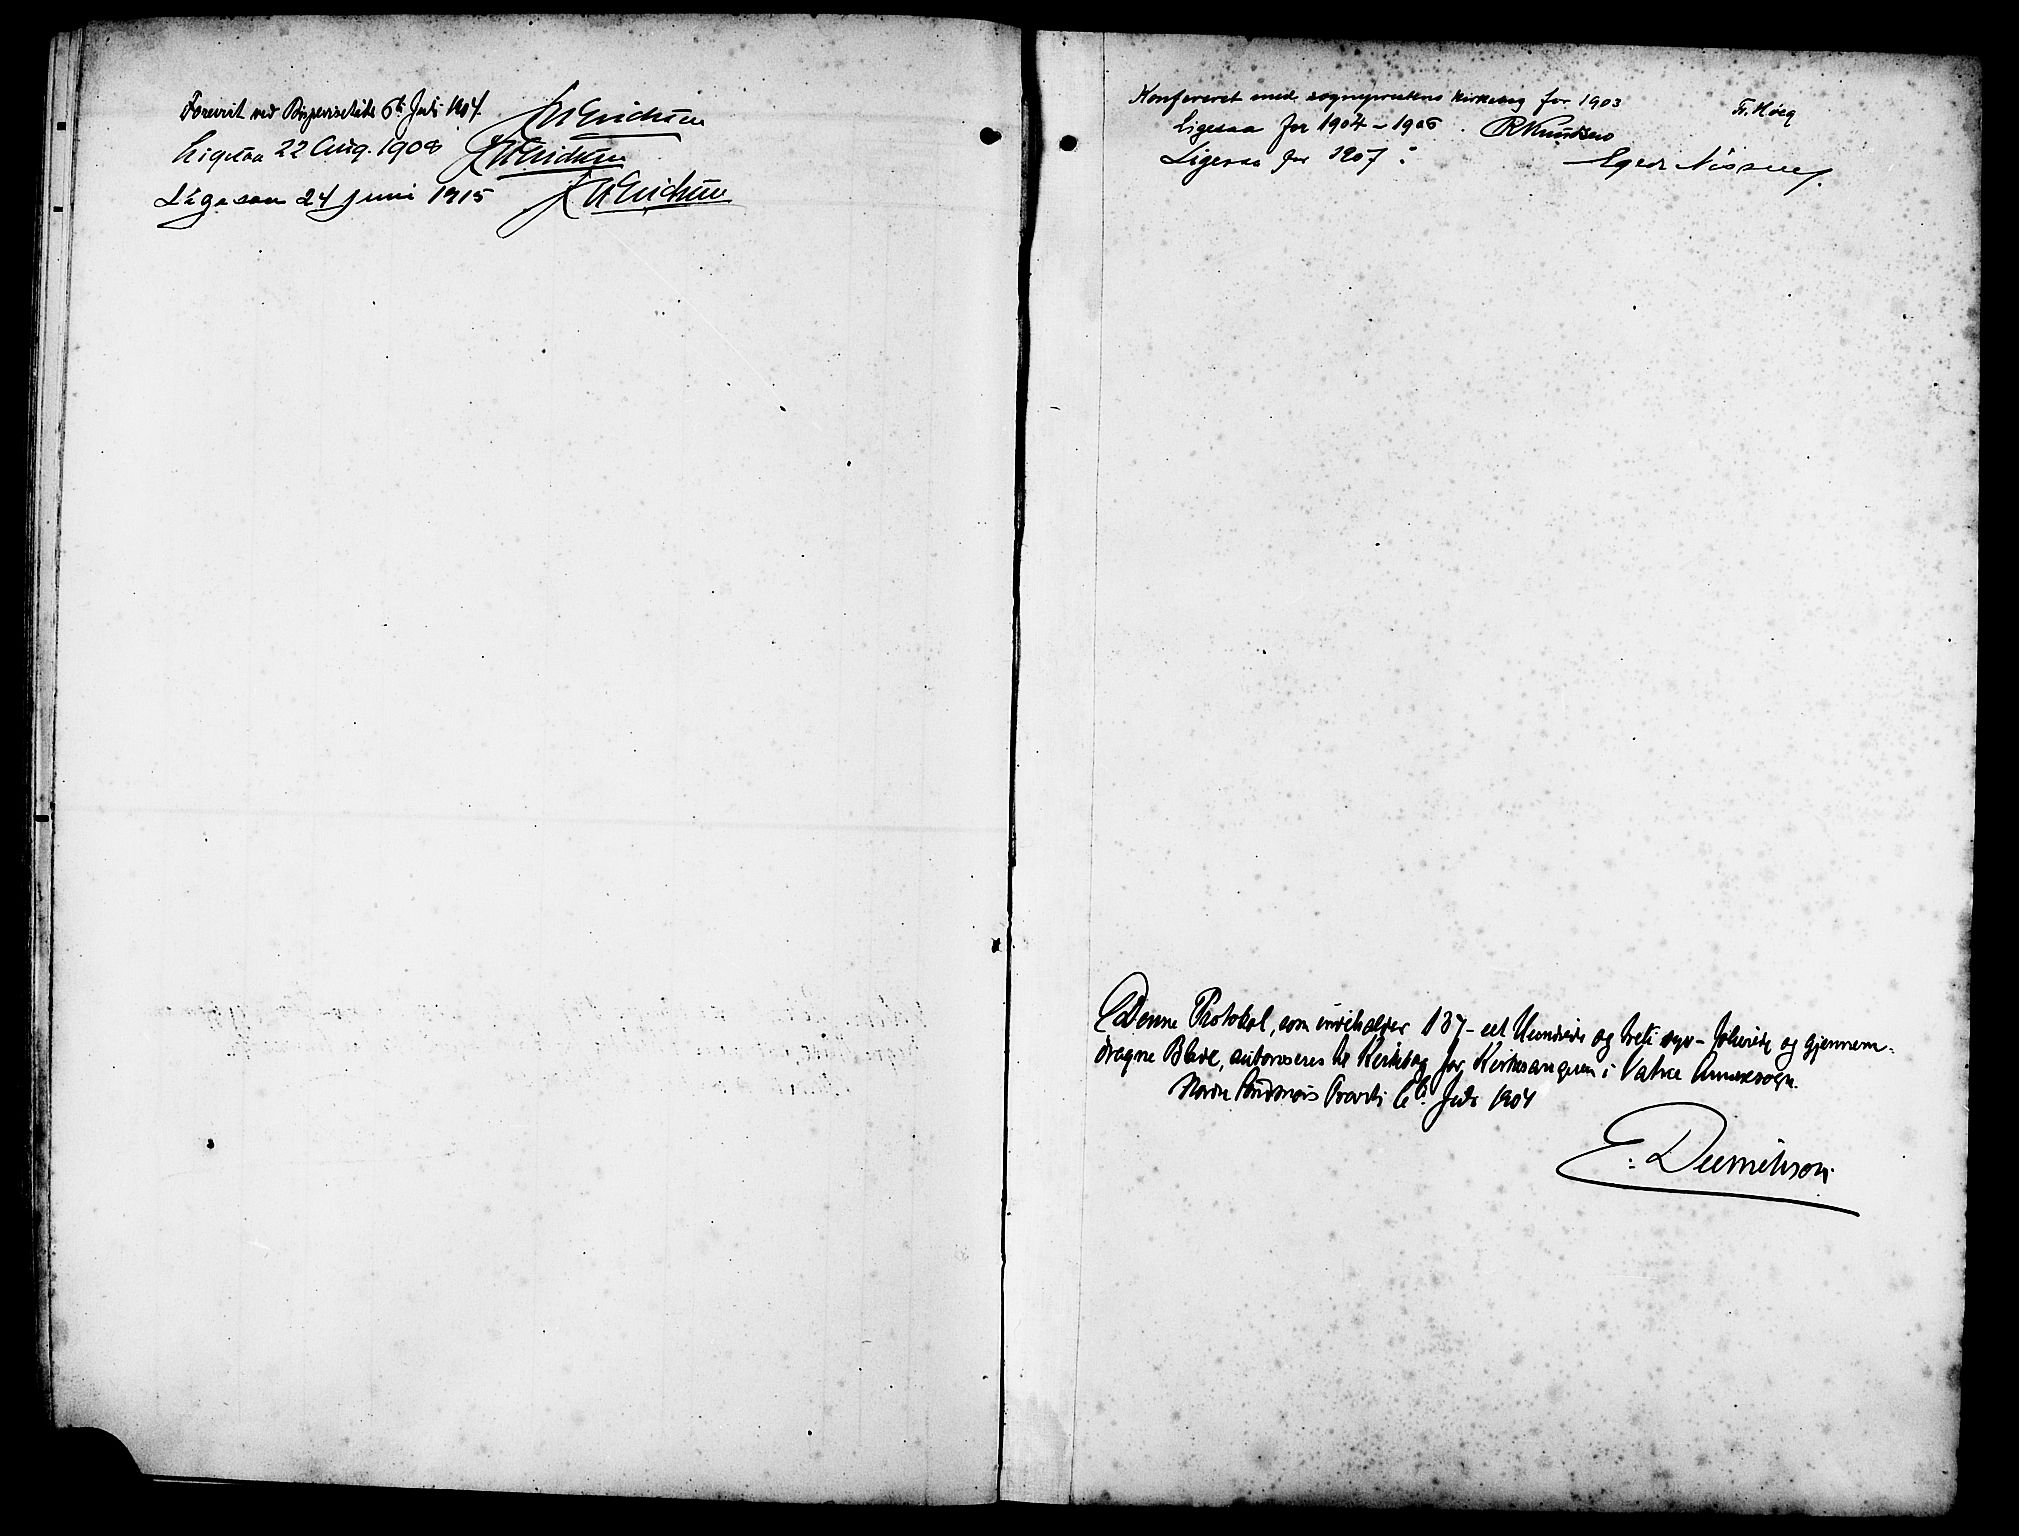 Forevist ved Bispevisitats 6te Juli 1904.
Ligesaa 22 Aug. 1908
Ligesaa 24 Juni 1915
Konfereret med sogneprestens kirkebog for 1903
Fr. Høeg
Ligesaa for 1904 – 1906. R Knudsen
Ligesaa for 1907: Egede Nissen.
Denne Protokol, som indeholder 137 – et Hundrede og treti syv – folierede og gjennem-
dragne Blade, autoriseres til Kirkebog for Kirkesangeren i Vatne Annexsogn.
Nordre Søndmørs Provsti 6te Juli 1904